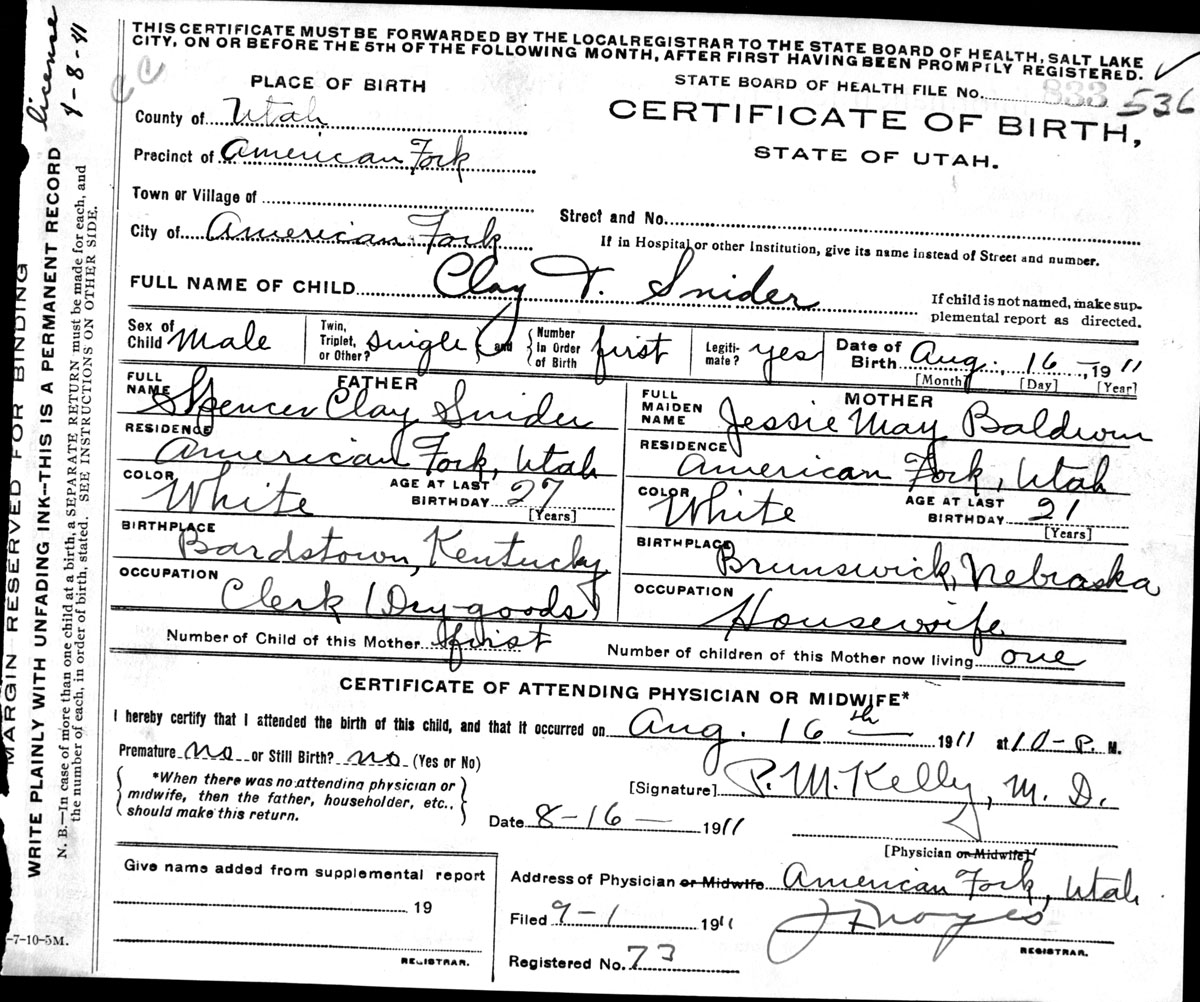 THIS CERTIFICATE MUST BE FORWARDED BY THE LOCALREGISTRAR TO THE STATE BOARD OF HEALTH, SALT LAKE
CITY, ON OR BEFORE THE 5TH OF THE FOLLOWING MONTH, AFTER FIRST HAVING BEEN PROMPTLY REGISTERED.
PLACE OF BIRTH
STATE BOARD OF HEALTH FILE No. 833 536
CERTIFICATE OF BIRTH,
STATE OF UTAH.
County of Utah
Precinct of American Fork
Town or Village of
Street and No.
City of American Fork
If in Hospital or other Institution, give its name instead of Street and number.
FULL NAME OF CHILD Clay T. Snider
If child is not named, make sup-
plemental report as directed.
Sex of Child Male
Twin, Triplet, or Other? single and Number in Order of Birth first
Legiti-mate? yes
Date of Birth Aug. 16 - , 1911
[Month] [Day] [Year]
FATHER
FULL NAME Spencer Clay Snider
RESIDENCE American Fork, Utah
COLOR White AGE AT LAST BIRTHDAY 27
[Years]
BIRTHPLACE Bardstown, Kentucky
OCCUPATION Clerk (Dry-goods)
MOTHER
FULL MAIDEN NAME Jessie May Baldwin
RESIDENCE American Fork, Utah
COLOR White AGE AT LAST BIRTHDAY 21
[Years]
BIRTHPLACE Brunswick, Nebraska
OCCUPATION Housewife
Number of Child of this Mother first
Number of children of this Mother now living one
CERTIFICATE OF ATTENDING PHYSICIAN OR MIDWIFE*
I hereby certify that I attended the birth of this child, and that it occurred on Aug. 16th 1911 at 10-P. M.
Premature no or Still Birth? no (Yes or No)
*When there was no attending physician or
midwife, then the father, householder, etc.,
should make this return.
[Signature] P. M. Kelly, M. D.
Date 8-16- 1911
[Physician or Midwife]
Give name added from supplemental report
19
REGISTRAR.
Address of Physician or Midwife American Fork, Utah
Filed 9-1 1911
J Noyes
REGISTRAR.
Registered No. 73
-7-10-5M.
MARGIN RESERVED FOR BINDING
WRITE PLAINLY WITH UNFADING INK--THIS IS A PERMANENT RECORD
N. B.—In case of more than one child at a birth, a SEPARATE RETURN must be made for each, and
the number of each, in order of birth, stated. SEE INSTRUCTIONS ON OTHER SIDE.
license
-8-41